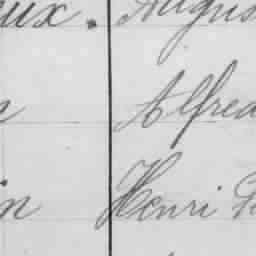 ux. Augus
Alfred
in Henri